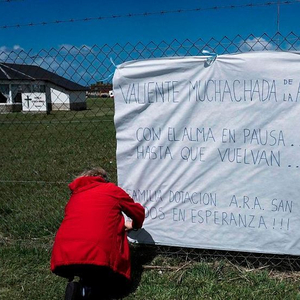 VALIENTE MUCHACHADA DE LA A
CON EL ALMA EN PAUSA..
HASTA QUE VUELVAN ...
FAMILIA DOTACION A.R.A. SAN
EN ESPERANZA !!!